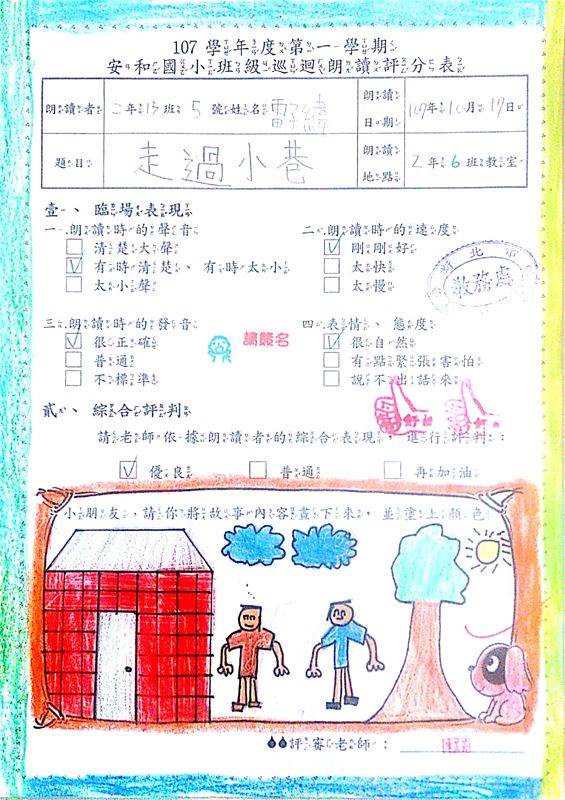 107 學年度第一學期
安和國小班級巡迴朗讀評分表
朗讀者 二年13班 5 號姓名
朗讀日期 107年10月17日
題目 走過小巷
朗讀地點 2年6班教室
壹、臨場表現
一、朗讀時的聲音
清楚大聲
有時清楚、有時太小
太小聲
二、朗讀時的速度
剛剛好
太快
太慢
新北市
教務處
三、朗讀時的發音
很正確
普通
不標準
請簽名
四、表情、態度
很自然
有點緊張害怕
說不出話來
貳、綜合評判
請老師依據朗讀者的綜合表現,進行評判:
優良 普通 再加油
小朋友,請你將故事內容畫下來,並塗上顏色
評審老師: